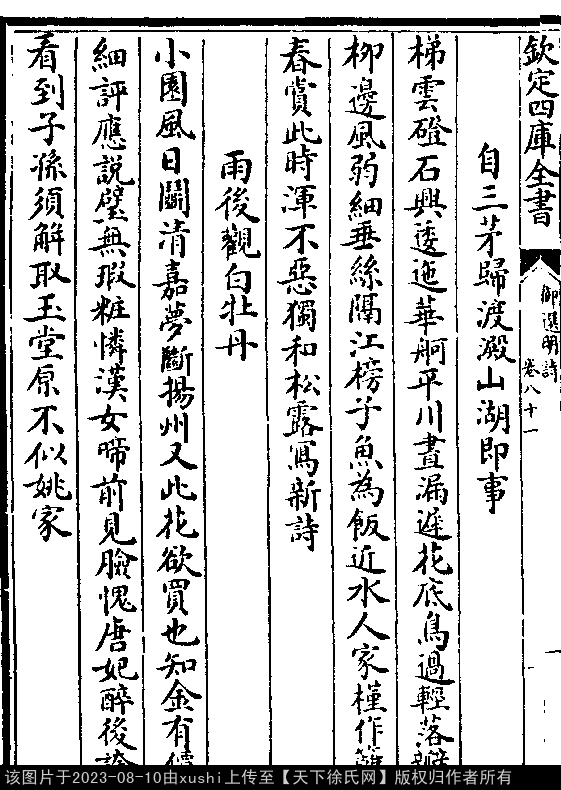 欽定四庫全書
御選明詩
卷八十一
自三茅歸渡澱山湖即事
梯雲磴石興逶迤華舸平川晝漏遲花底鳥過輕落瓣
柳邊風弱細垂絲隔江榜子魚為飯近水人家槿作籬
春賞此時渾不惡獨和松露寫新詩
雨後觀白牡丹
小園風日鬭清嘉夢斷揚州又此花欲買也知金有價
細評應說璧無瑕粧憐漢女啼前見臉愧唐妃醉後誇
看到子孫須解取玉堂原不似姚家
该图片于2023-08-10由xushi上传至【天下徐氏网】版权归作者所有